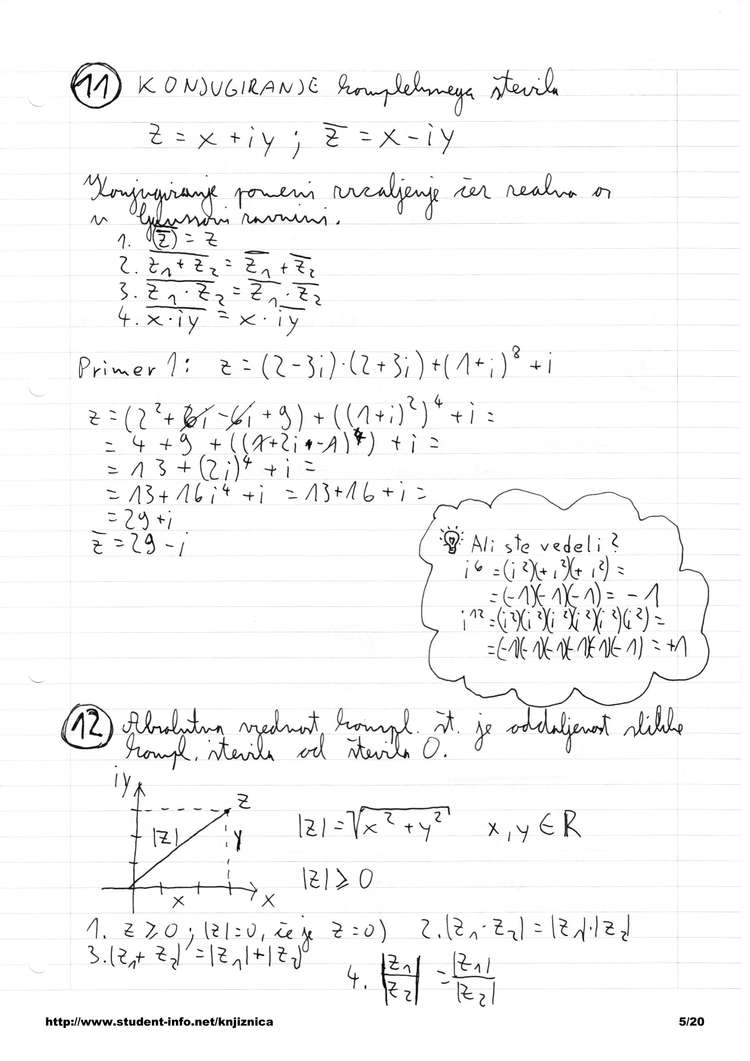 11 KONJUGIRANJE kompleksnega števila
z = x + iy ; z̅ = x - iy
Konjugiranje pomeni zrcaljenje čez realna os
v Gaussovi ravnini.
1. \overline{(\overline{z})} = z
2. \overline{z₁ + z₂} = \overline{z₁} + \overline{z₂}
3. \overline{z₁ · z₂} = \overline{z₁} · \overline{z₂}
4. \overline{x · iy} = x · \overline{iy}
Primer 1: z = (2-3i)·(2+3i)+(1+i)⁸ + i
z = (2² + 6i - 6i + 9) + ((1+i)²)⁴ + i =
= 4 + 9 + ((1+2i+-1)⁴) + i =
= 13 + (2i)⁴ + i =
= 13 + 16i⁴ + i = 13+16 + i =
= 29 + i
z̅ = 29 - i
Ali ste vedeli?
i⁶ = (i²)(+i²)(+i²) =
= (-1)(-1)(-1) = -1
i¹² = (i²)(i²)(i²)(i²)(i²)(i²) =
= (-1)(-1)(-1)(-1)(-1)(-1) = +1
12 Absolutna vrednost kompl. št. je oddaljenost slike
kompl. števila od števila 0.
iy
z
|z|
y
x
x
|z| = √x² + y² x, y ∈ R
|z| ≥ 0
1. z ≥ 0 ; |z|=0, če je z = 0) 2. |z₁ · z₂| = |z₁|·|z₂|
3. |z₁ + z₂| = |z₁| + |z₂|
4. |z₁/z₂| = |z₁|/|z₂|
http://www.student-info.net/knjiznica 5/20